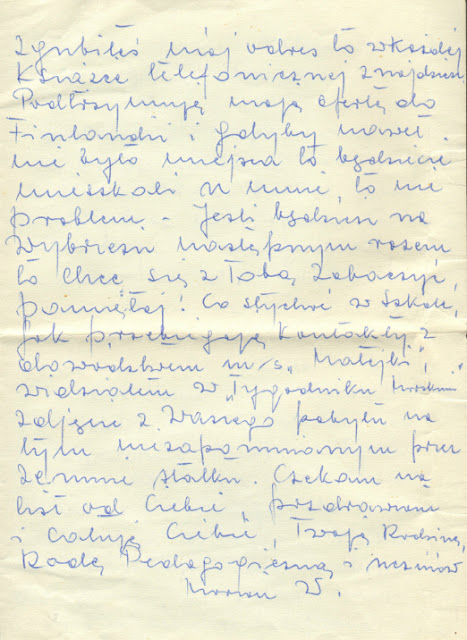 Zgubiłeś mój adres to w każdej
Książce telefonicznej znajdziesz
Podtrzymuję moją ofertę do
Finlandii i gdyby nawet
nie było miejsca to będziecie
mieszkali u mnie, to nie
problem - Jeśli będziesz na
Wybrzeżu następnym razem
to chcę się z Tobą zobaczyć,
pamiętaj! Co słychać w Szkole,
Jak przebiegają kontakty z
dowództwem m/s „Matejki",
widziałem w „Tygodniku Morskim"
zdjęcie z Waszego pobytu na
tym niezapomnianym przez
ze mnie statku. Czekam na
list od Ciebie, pozdrawiam
i całuję Ciebie, Twoją Rodzinę,
Radę Pedagogiczną i uczniów
Marian W.